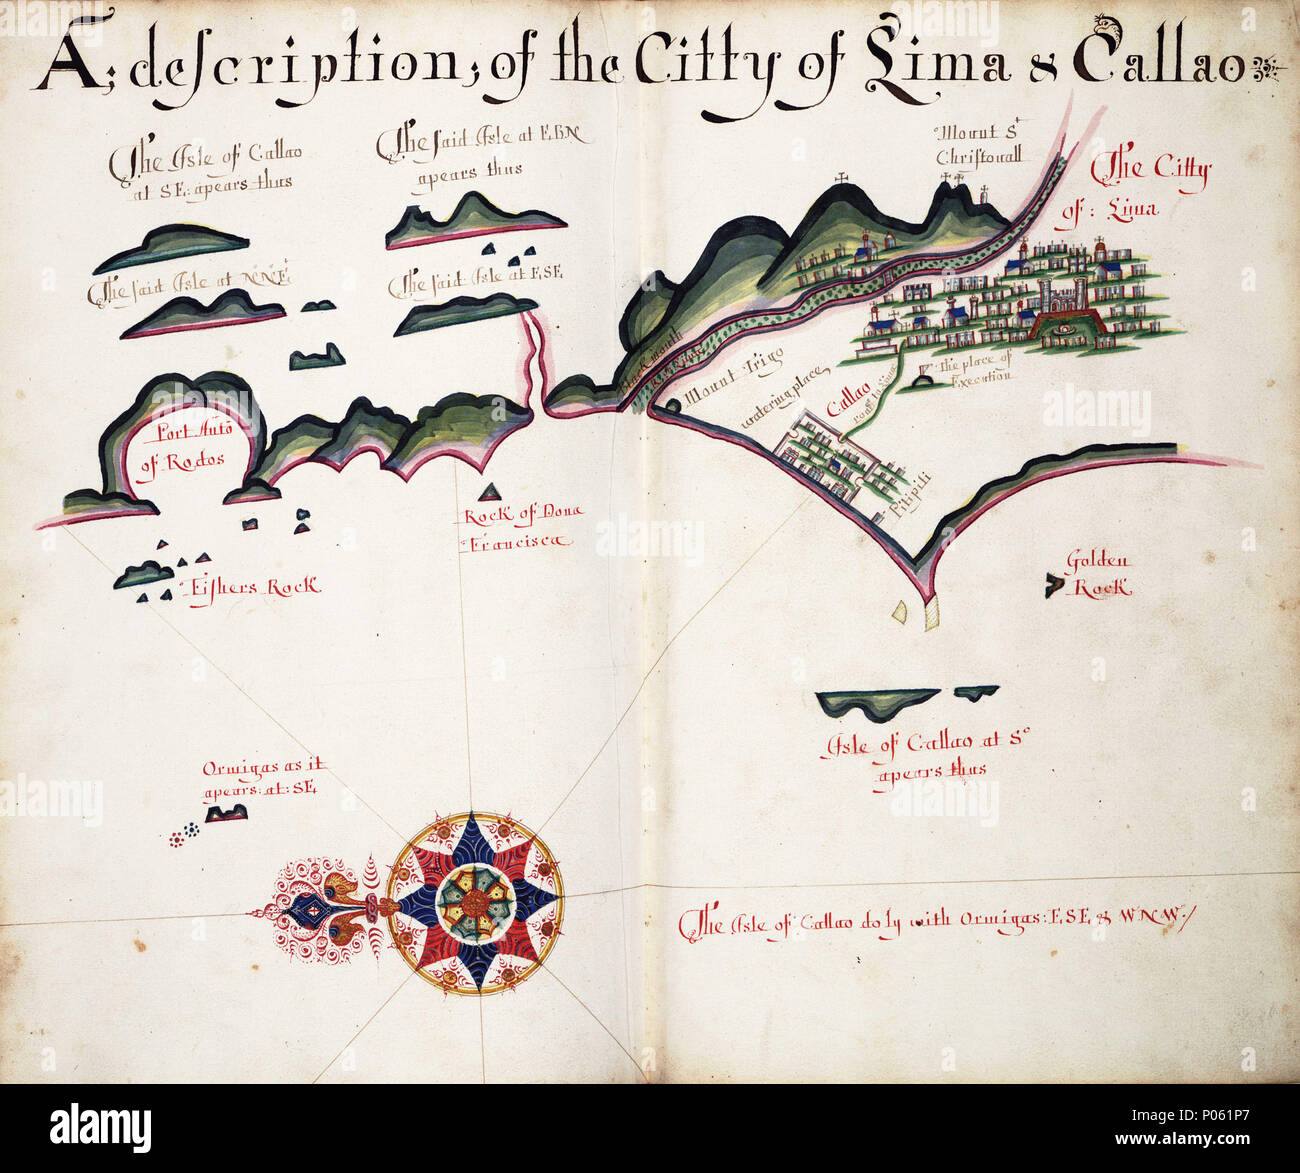 A; description, of the Citty of Lima & Callao
The Isle of Callao
at SE: apears thus
The said Isle at EbN
apears thus
The said Isle at NNE
The said Isle at ESE
Mount St
Christovall
The Citty
of: Lima
Port Anto
of Rodos
Black mouth
Mount Trigo
watering place
Callao
road to Lima
The place of
Execution
Pitipiti
Rock of Dona
Francisca
Fishers Rock
Golden
Rock
Isle of Callao at So
apears thus
Ormigas as it
apears: at: SE
The Isle of Callao do ly with Ormigas: ESE & WNW/
alamy
Image ID: P061P7
www.alamy.com